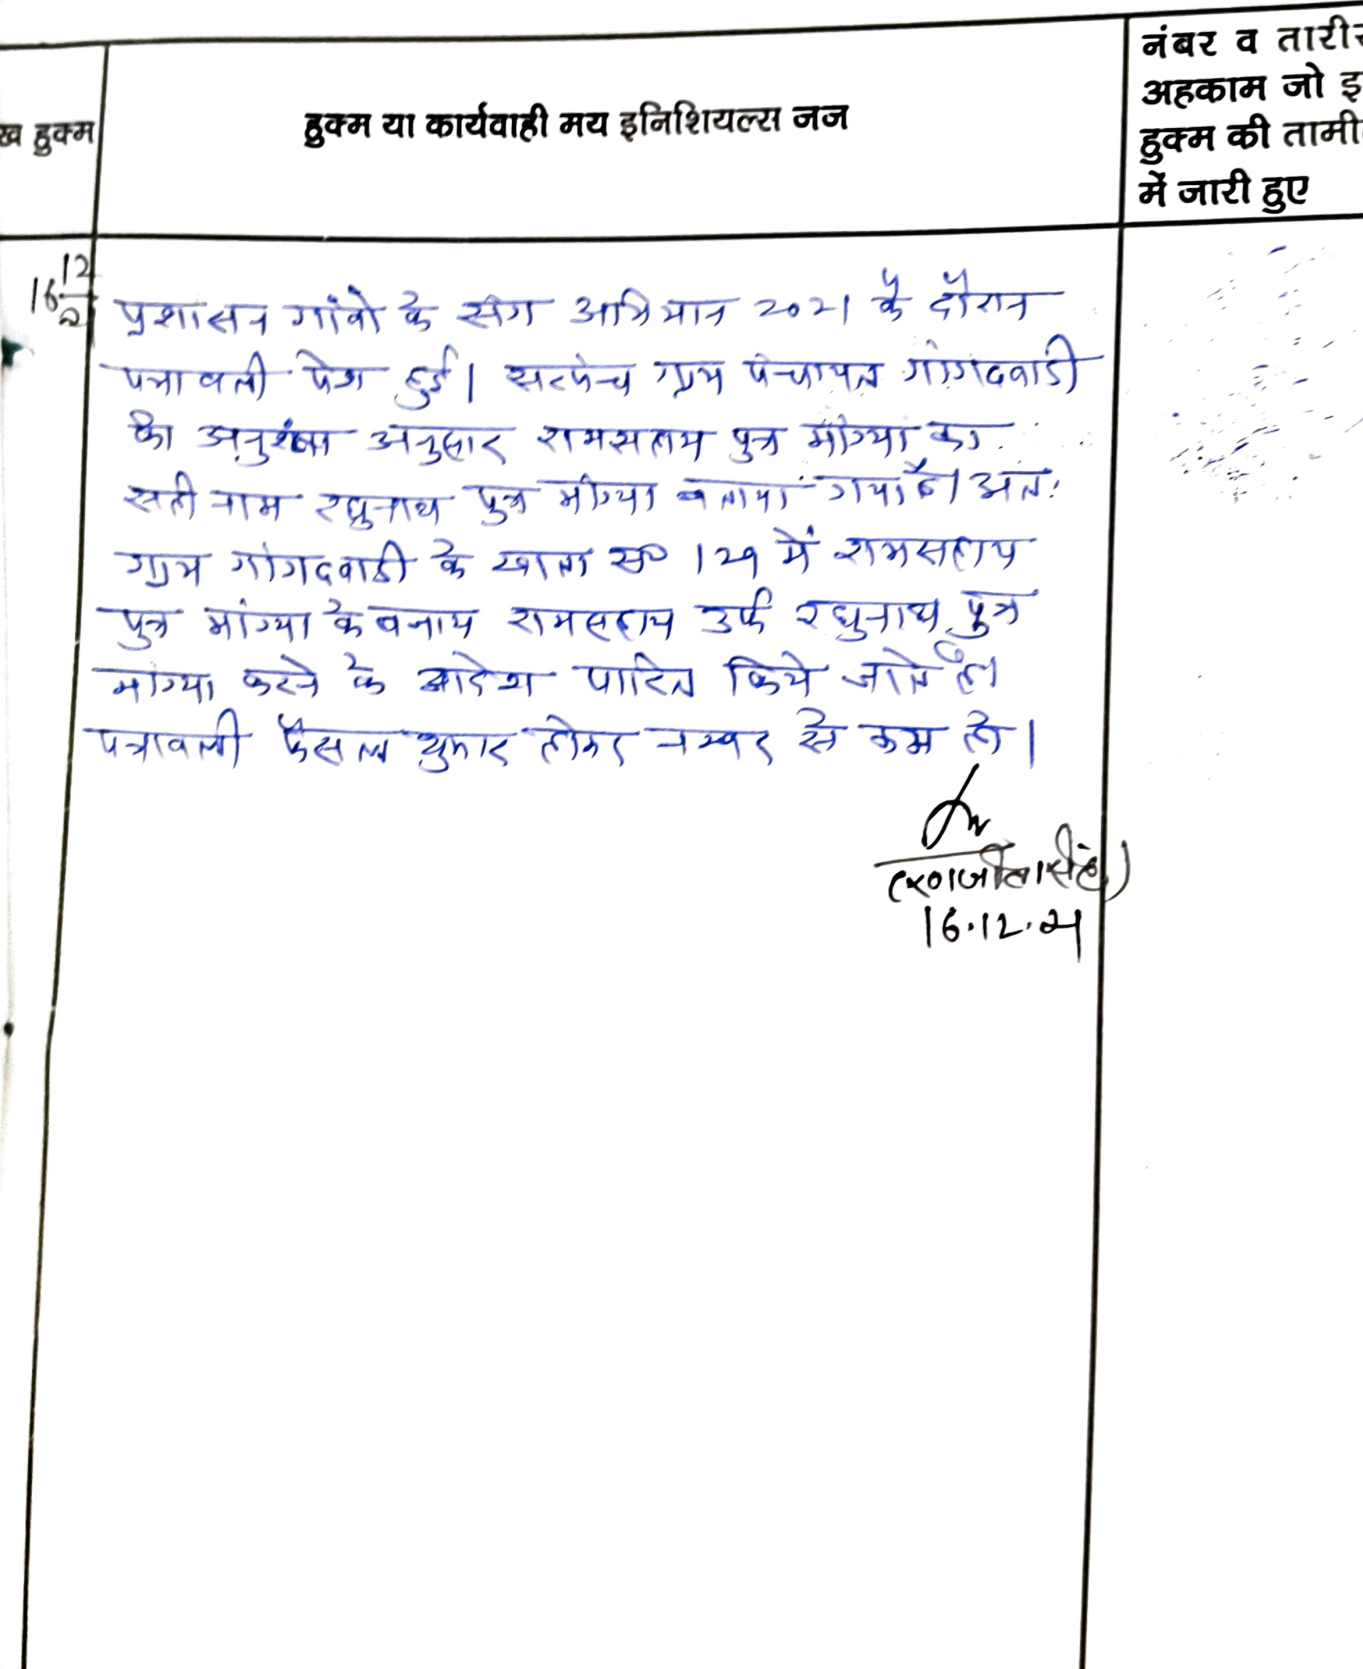 ख हुक्म
हुक्म या कार्यवाही मय इनिशियल्स जज
नंबर व तारीर
अहकाम जो इ
हुक्म की तामी
में जारी हुए
16 12/21
प्रशासन गांवो के संग अभियान 2021 के दौरान
पत्रावली पेश हुई। सरपंच ग्राम पंचायत गांगदवाडी
की अनुशंषा अनुसार रामसहाय पुत्र मांग्या का
सही नाम रघुनाथ पुत्र मांग्या बताया गया है। अतः
ग्राम गांगदवाडी के खाता सं० 129 में रामसहाय
पुत्र मांग्या के बजाय रामसहाय उर्फ रघुनाथ पुत्र
मांग्या करने के आदेश पारित किये जाते है।
पत्रावली फैसल शुमार होकर नम्बर से कम हो।
(रणजीत सिंह)
16.12.21